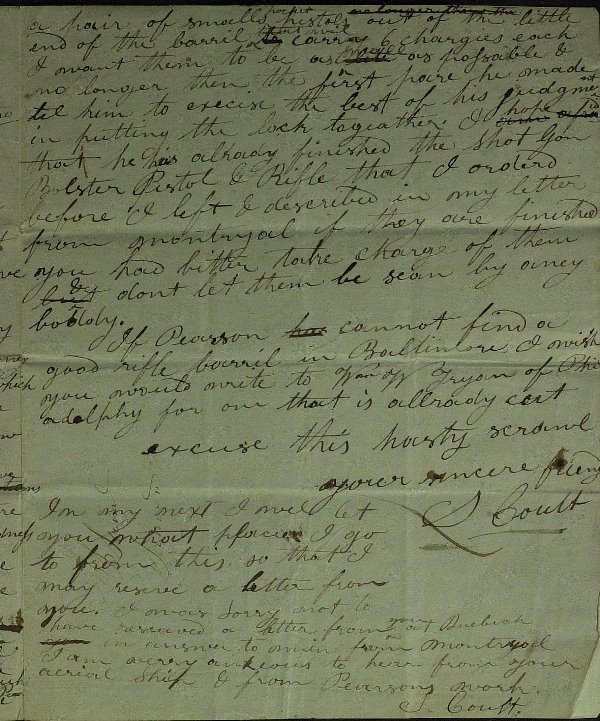 a pair of smalls pocket pistols out of the little
end of the barril to carry 6 chargies each
I want them to be as light as possable &
no longer then the first pare he made
tel him to excise the best of his judgment
in putting the lock togeather. I hope
that he has allready finished the Shot Gon
Bolster Pistol & Rifle that I orderd
before I left & described in my letter
from montryal if they are finished
you had bitter take charge of them
& dont let them be sean by aney
boddy.
If Pearson has cannot find a
good rifle barril in Baltimore I wish
you would write to Wm W Tryan of Phi
adelphy for one that is allready cut
excuse this hasty scrawl
your sincere friend
S Coult
In my next I will let
you what places I go
to from this so that I
may reseve a letter from
you. I was sorry not to
have reseived a letter from you at Quebeck
in answer to min from Montryal
I am verey anxeous to hear from your
aerial ship & from Pearsons work.
S. Coult.